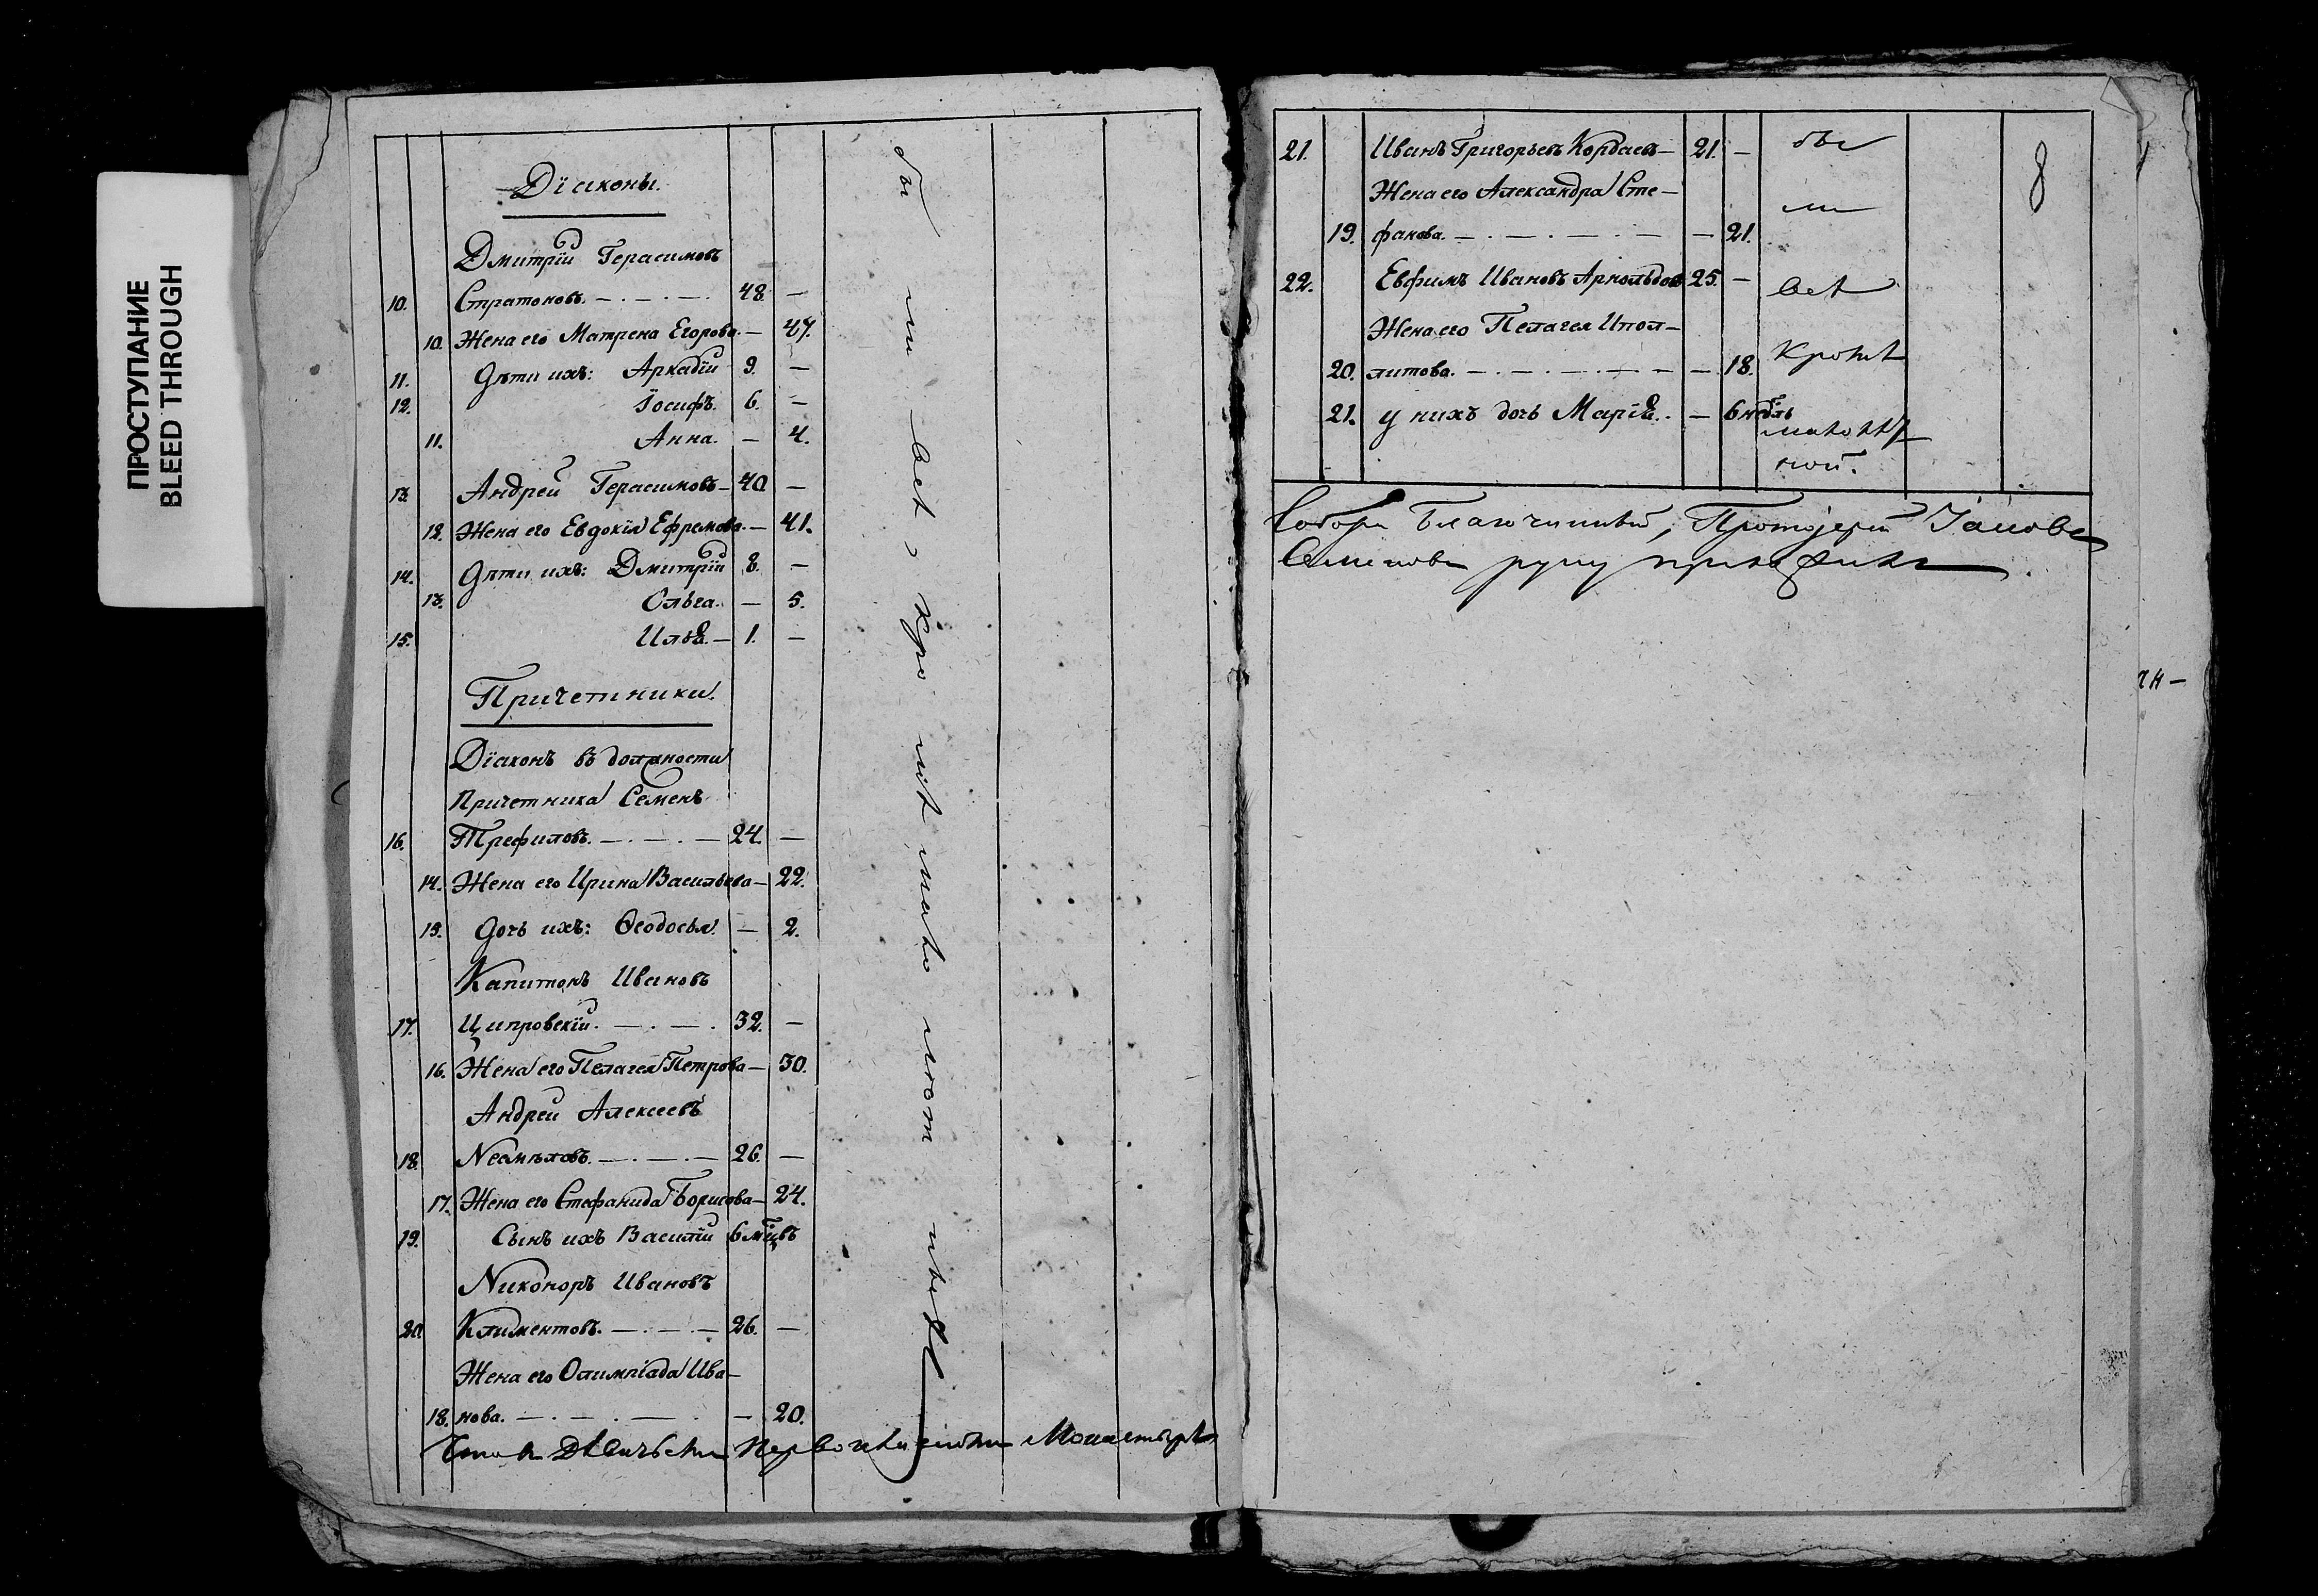 ПРОСТУПАНИЕ
BLEED THROUGH
Діаконы.
Дмитрій Герасимовъ
10. Стратоновъ. — . — . — . 48. —
10. Жена его Матрена Егорова. — 47.
11. Дѣти ихъ: Аркадій 9. —
12. Іосифъ. 6. —
11. Анна. — 4.
13. Андрей Герасимовъ — 40 —
12. Жена его Евдокія Ефремова. — 41.
14. Дѣти ихъ: Дмитрій 8. —
13. Ольга. — 5.
15. Илья. — 1. —
Причетники.
Діаконъ въ должности
Причетника Семенъ
16. Трефиловъ. — . — . — 24. —
14. Жена его Ирина Васильева — 22.
15. Дочь ихъ: Ѳеодосья. — 2.
Капитонъ Ивановъ
17. Ципровскій. — . — . 32. —
16. Жена его Пелагея Петрова — 30.
Андрей Алексеевъ
18. Несмѣловъ. — . — . — 26. —
17. Жена его Стефанида Борисова — 24.
19. Сынъ ихъ Василій 6 мцвъ
Никоноръ Ивановъ
20. Климентовъ. — . — . — 26. —
Жена его Олимпіада Ива-
18. нова. — . — . — . — 20.
бы ли всѣ, кро мѣ мало лѣт
Монастыря
8
21. Иванъ Григорьевъ Кордаевъ — 21. —
Жена его Александра Сте-
19. фанова. — . — . — . — — 21.
22. Евфимъ Ивановъ Арнольдовъ 25. —
Жена его Пелагея Ипол-
20. литова. — . — . — . — . — — 18.
21. у нихъ дочь Марія. — 6 недль
бы
ли
всѣ
кромѣ
ной.
Собора Благочинный, Протоіерей Іаковъ
Семеновъ руку приложилъ.